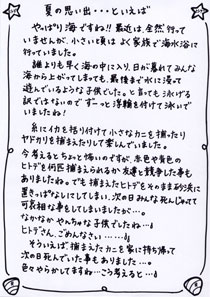 夏の思い出・・・といえば
やっぱり海ですね!!最近は、全然行って
いませんが、小さい頃はよく家族で海水浴に
行っていました。
誰よりも早く海の中に入り、日が暮れてみんな
海から上がってしまっても、最後まで水に浸って
遊んでいるような子供でした。と言っても泳げる
訳ではないので ずーっと浮輪を付けて泳いで
いましたね!
糸にイカを括り付けて小さなカニを捕ったり
ヤドカリを捕まえたりして楽しんでいました。
今考えるとちょっと怖いのですが、赤色や黄色の
ヒトデを何匹捕まえられるか友達と競争した事も
ありましたね。でも 捕まえたヒトデをそのまま砂浜に
置きっぱなしにしてしまい、次の日みんな死んじゃってて
可哀相な事をしてしまいましたが・・・。
なかなか やんちゃな子供でしたね・・・!
ヒトデさん、ごめんなさい・・・・。
そういえば、捕まえたカニを家に持ち帰って
次の日死んでいた事もありました・・・。
色々やらかしてますね…こう考えると…!